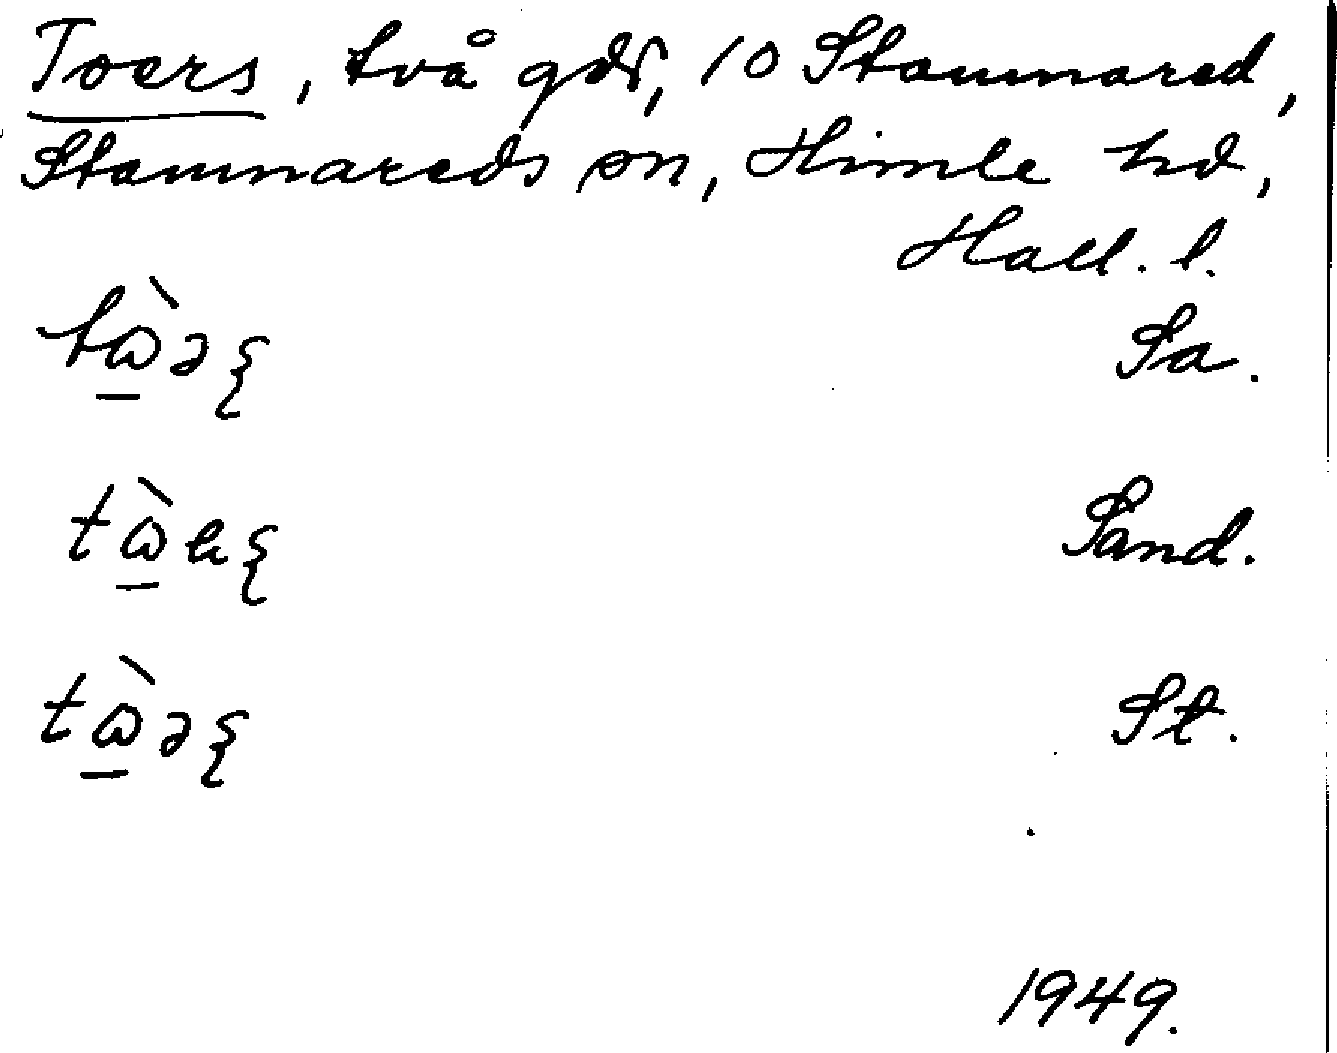 Toers, två gdr, 10 Stamnared,
Stamnareds sn, Himle hd,
Hall. l.
Sa.
Sand.
St.
1949.